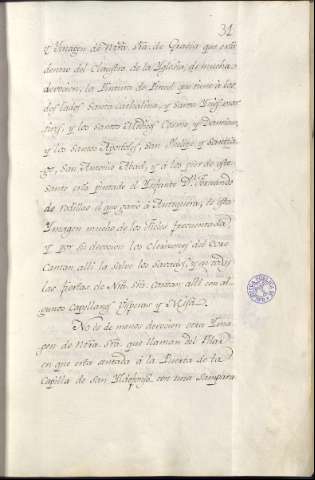 31
Ymagen de Nrã. Srã. de Gracia que está
dentro del Claustro de la Yglesia, de mucha
devocion, la Pintura de Pincel que tiene à los
dos lados Santa Cathalina, y Santa
y los Santos Medicos Cosme, y Damian,
y los Santos Apostoles, San Phelipe, y Santia
go, San Antonio Abad, y á los pies de este
Santo está pintado el Ynfante Dn. Fernando
de rodillas el que ganó à Antequera; es esta
Ymagen mucho de los fieles frecuentada
y por su devocion los Clerizones del Coro
Cantan allí la Salve los Savados, y en todas
las fiestas de Nrã. Srã. Cantan allí con al
gunos Capellanes Visperas y Missa.
No es de menos devocion otra Yma
gen de Nrã. Srã. que llaman del
en que está à la Puerta de la
Capilla de San Yldefonso, con una Lampara